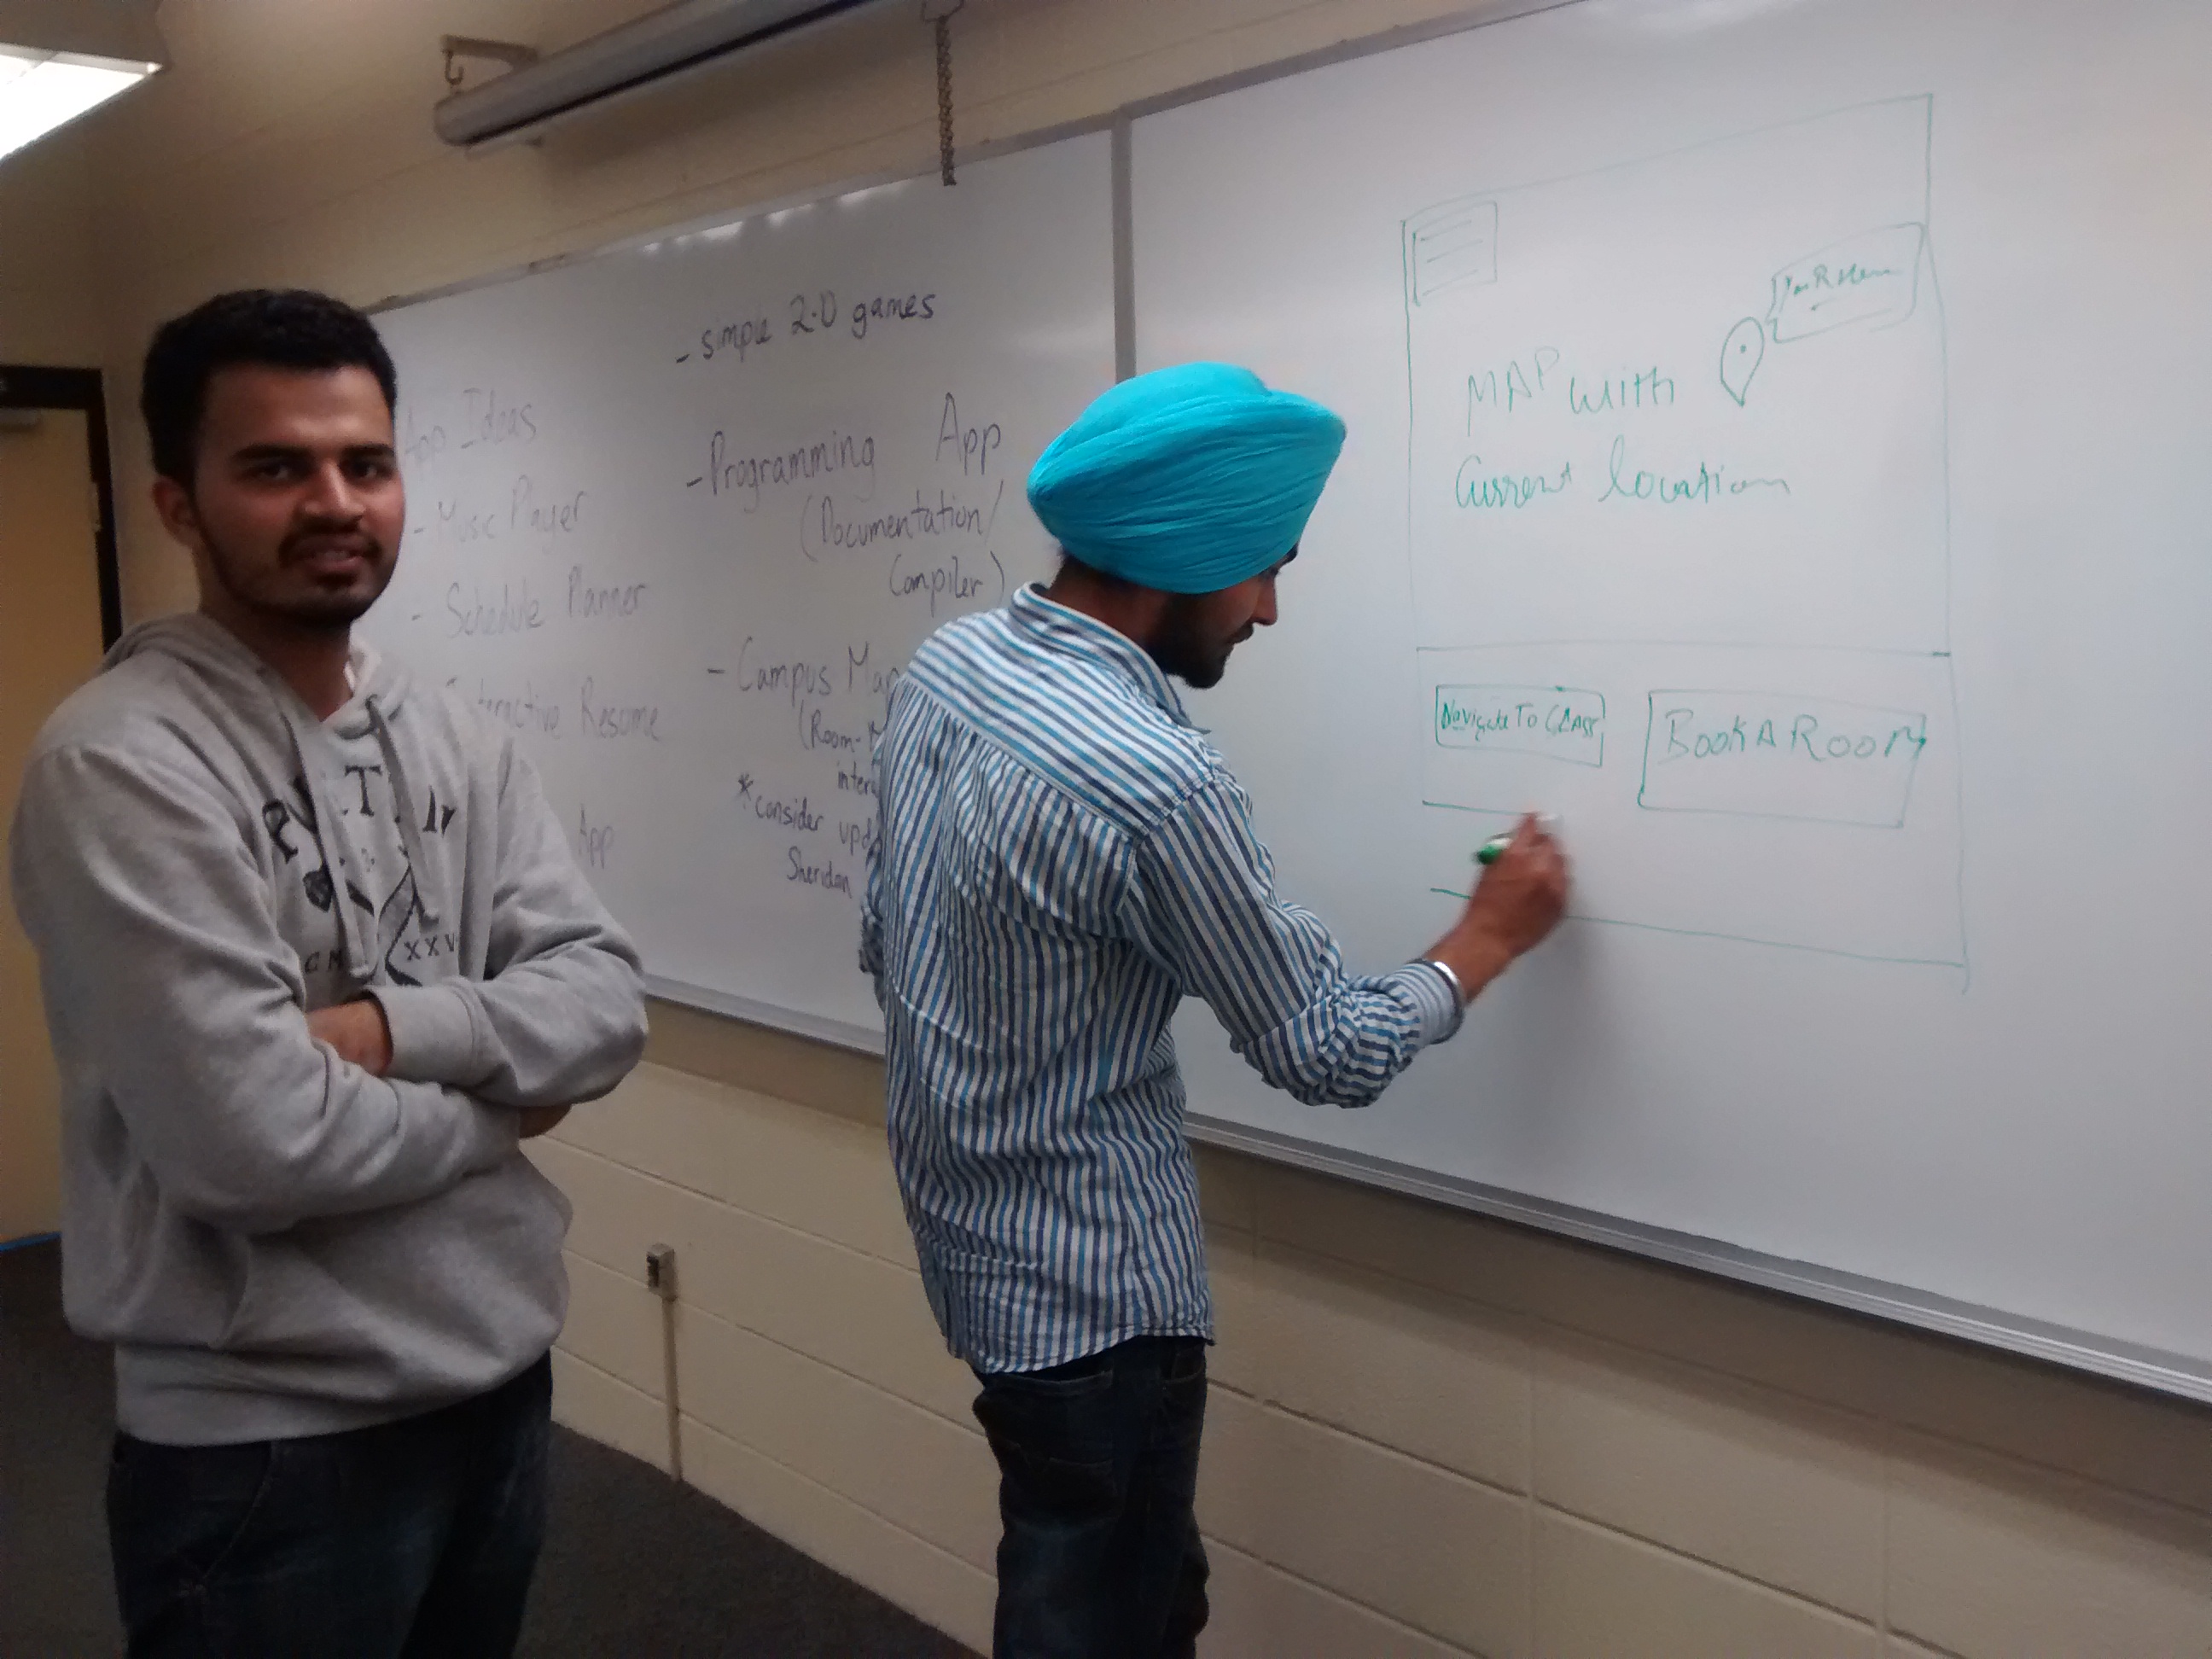 App Ideas
- Music Player
- Schedule Planner
Resume
App
- simple 2-D games
- Programming App
(Documentation/
Compiler)
- Campus Map
(Room-
* consider
Sheridan
MAP with
Current location
Navigate To Class
BOOK A ROOM
XXV